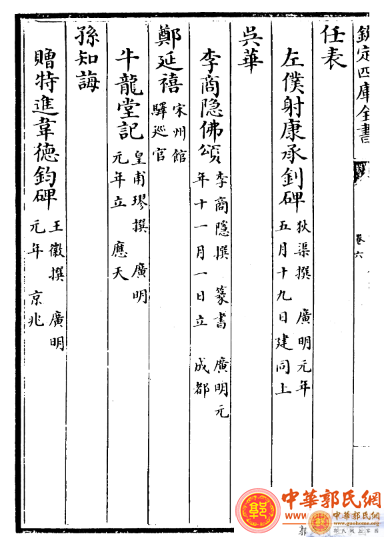 欽定四庫全書
卷六
任表
左僕射康承釗碑
狄渠撰 廣明元年
五月十九日建同上
吳華
李商隐佛頌
李商隐撰 篆書 廣明元
年十一月一日立 成都
鄭延禧
宋州館
驛巡官
牛龍堂記
皇甫璆撰 廣明
元年立 應天
孫知誨
贈特進韋德鈞碑
王徽撰 廣明
元年 京兆
中華郭氏網